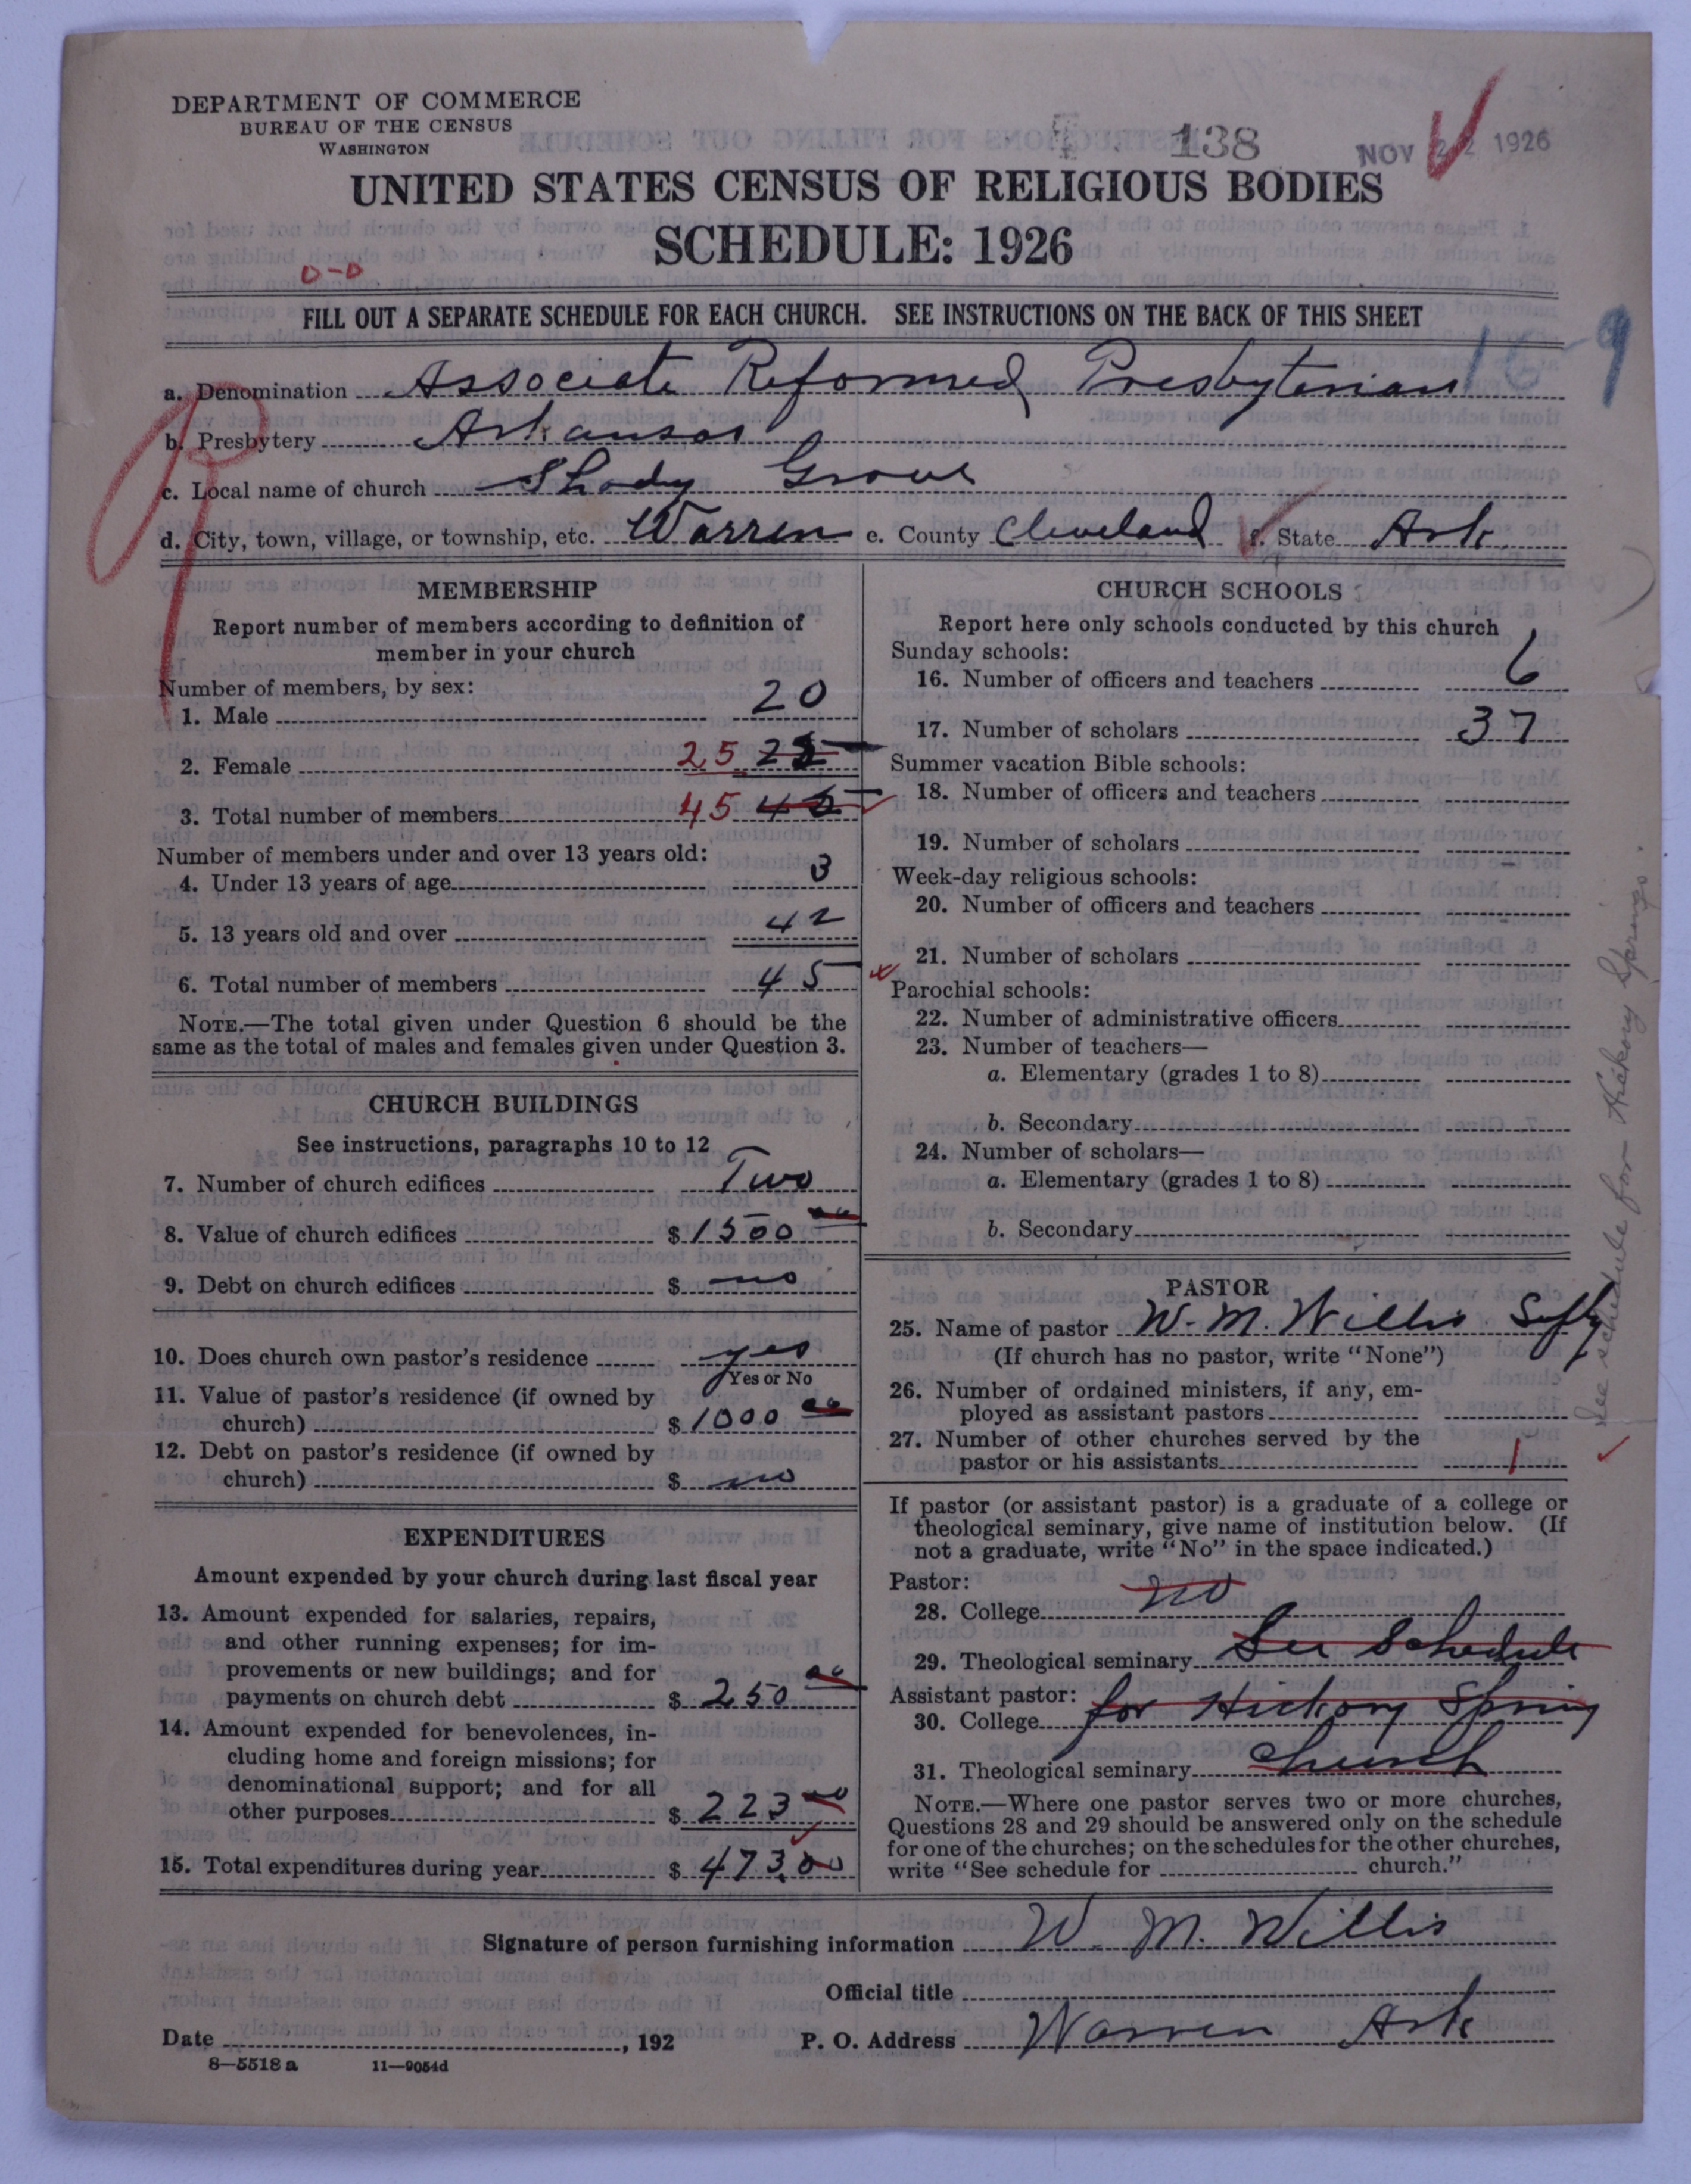 DEPARTMENT OF COMMERCE
BUREAU OF THE CENSUS
WASHINGTON
138
NOV 22 1926
UNITED STATES CENSUS OF RELIGIOUS BODIES
SCHEDULE: 1926
0-0
FILL OUT A SEPARATE SCHEDULE FOR EACH CHURCH. SEE INSTRUCTIONS ON THE BACK OF THIS SHEET
16-9
a. Denomination Associate Reformed Presbyterian
b. Presbytery Arkansas
c. Local name of church Shady Grove
d. City, town, village, or township, etc. Warren e. County Cleveland f. State Ark.
MEMBERSHIP
Report number of members according to definition of
member in your church
Number of members, by sex:
1. Male 20
2. Female 25 25
3. Total number of members 45 45
Number of members under and over 13 years old:
4. Under 13 years of age 3
5. 13 years old and over 42
6. Total number of members 45
NOTE.—The total given under Question 6 should be the
same as the total of males and females given under Question 3.
CHURCH BUILDINGS
See instructions, paragraphs 10 to 12
7. Number of church edifices Two
8. Value of church edifices $ 1500 00
9. Debt on church edifices $ no
10. Does church own pastor's residence yes
Yes or No
11. Value of pastor's residence (if owned by
church) $ 1000 00
12. Debt on pastor's residence (if owned by
church) $ no
EXPENDITURES
Amount expended by your church during last fiscal year
13. Amount expended for salaries, repairs,
and other running expenses; for im-
provements or new buildings; and for
payments on church debt $ 250 00
14. Amount expended for benevolences, in-
cluding home and foreign missions; for
denominational support; and for all
other purposes $ 223 00
15. Total expenditures during year $ 473.00
CHURCH SCHOOLS
Report here only schools conducted by this church
Sunday schools:
16. Number of officers and teachers 6
17. Number of scholars 37
Summer vacation Bible schools:
18. Number of officers and teachers
19. Number of scholars
Week-day religious schools:
20. Number of officers and teachers
21. Number of scholars
Parochial schools:
22. Number of administrative officers
23. Number of teachers—
a. Elementary (grades 1 to 8)
b. Secondary
24. Number of scholars—
a. Elementary (grades 1 to 8)
b. Secondary
PASTOR
25. Name of pastor W. M. Willis
(If church has no pastor, write "None")
26. Number of ordained ministers, if any, em-
ployed as assistant pastors
27. Number of other churches served by the
pastor or his assistants 1
If pastor (or assistant pastor) is a graduate of a college or
theological seminary, give name of institution below. (If
not a graduate, write "No" in the space indicated.)
Pastor:
28. College no
29. Theological seminary See Schedule
Assistant pastor:
30. College for Hickory Spring
31. Theological seminary church
NOTE.—Where one pastor serves two or more churches,
Questions 28 and 29 should be answered only on the schedule
for one of the churches; on the schedules for the other churches,
write "See schedule for church."
See schedule for Hickory Springs.
Signature of person furnishing information W. M. Willis
Official title
Date , 192
P. O. Address Warren Ark
8—5518 a 11—9054d